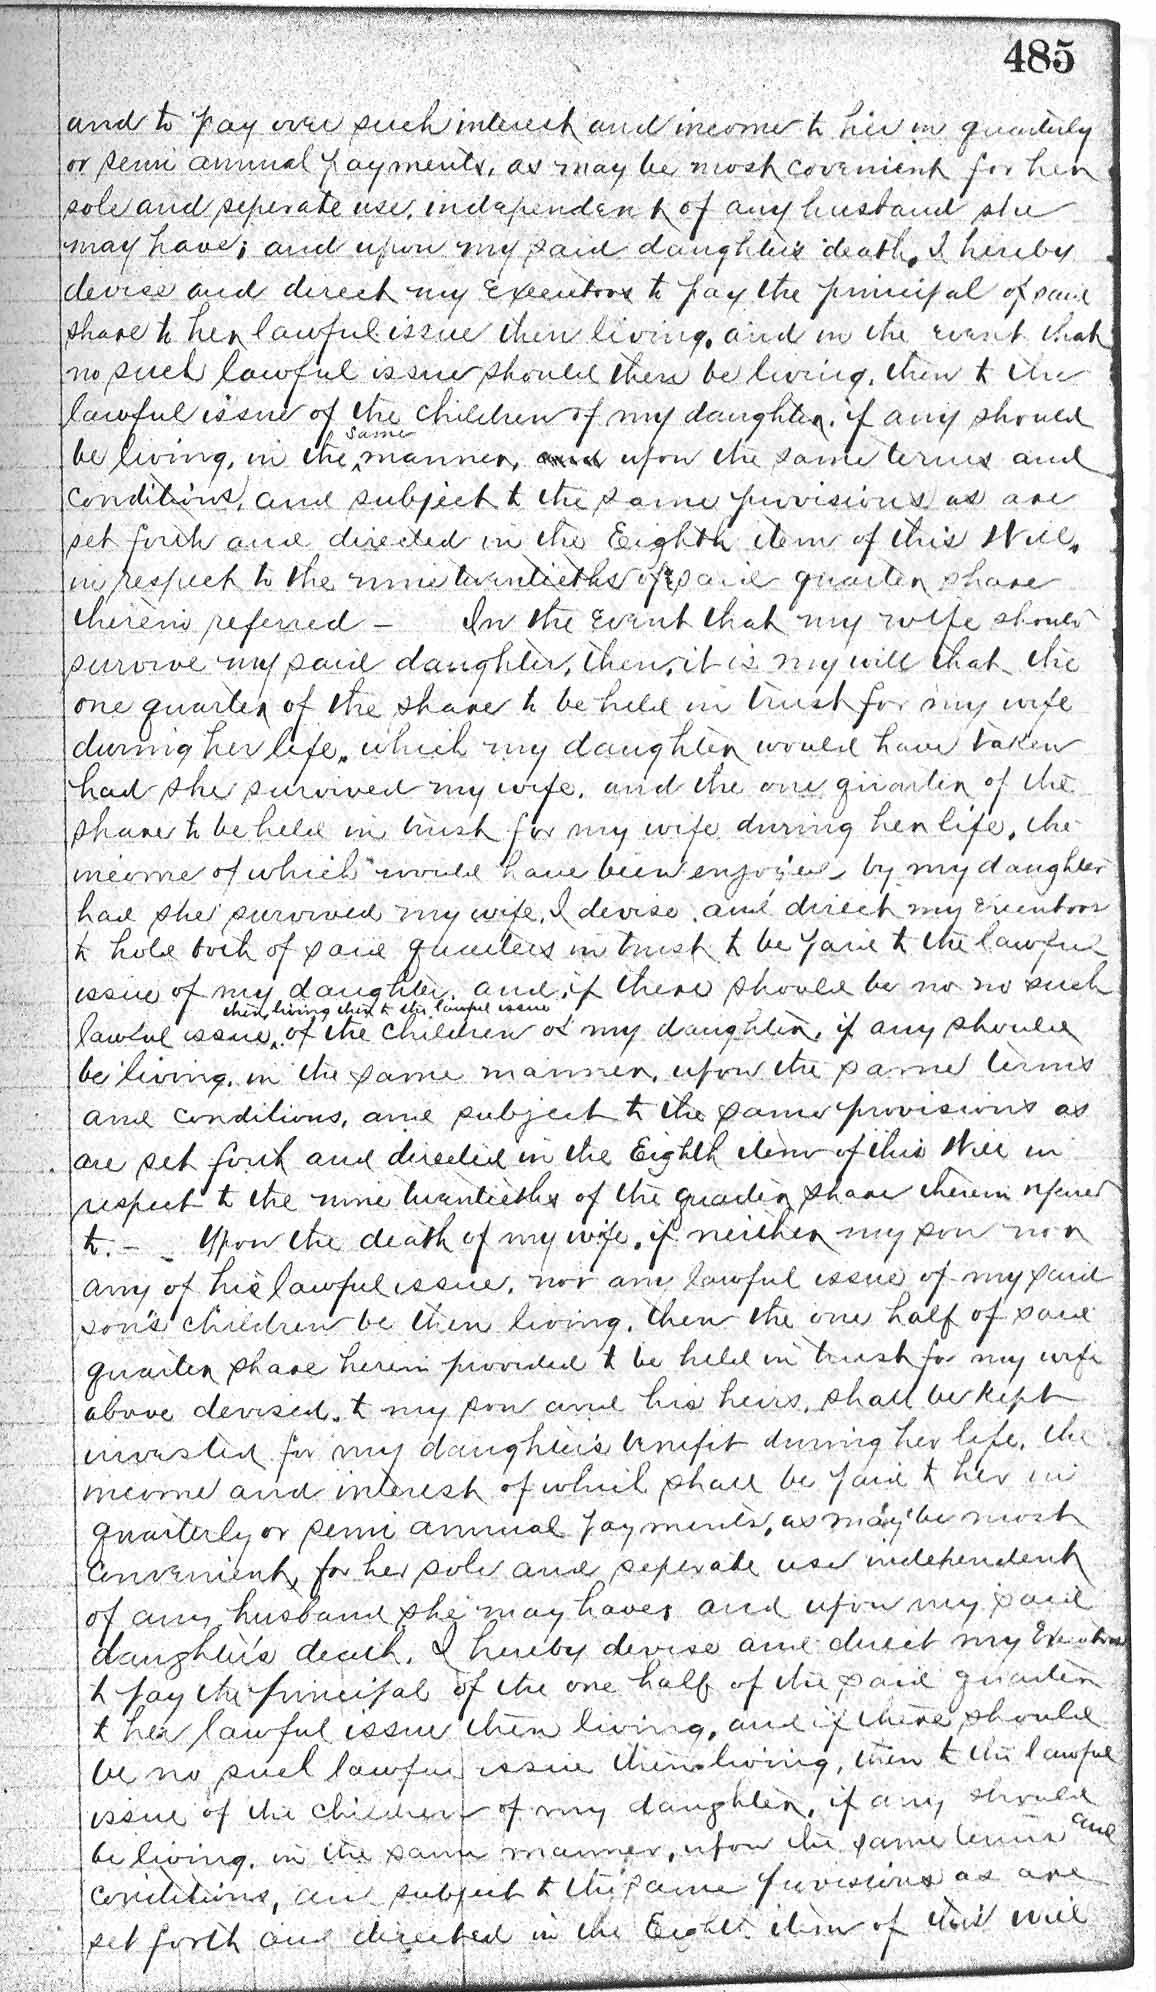 485
and to pay over such interest and income to her in quarterly
or semi annual payments, as may be most covenient for her
sole and seperate use, independent of any husband she
may have; and upon my said daughter's death, I hereby
devise and direct my Executors to pay the principal of said
share to her lawful issue then living, and in the event that
no such lawful issue should then be living, then to the
lawful issue of the children of my daughter, if any should
same
be living, in the manner, and upon the same terms and
conditions, and subject to the same provisions as are
set forth and directed in the Eighth item of this Will,
in respect to the nine twentieths of said quarter share
therein referred – In the event that my wife should
survive my said daughter, then, it is my will that the
one quarter of the share to be held in trust for my wife
during her life, which my daughter would have taken
had she survived my wife, and the one quarter of the
share to be held in trust for my wife during her life, the
income of which would have been enjoyed by my daughter
had she survived my wife, I devise, and direct my Executors
to hold both of said quarters in trust to be paid to the lawful
issue of my daughter, and if there should be no no such
then living then to the lawful issue
lawful issue, of the children of my daughter, if any should
be living, in the same manner, upon the same terms
and conditions, and subject to the same provisions as
are set forth and directed in the Eighth item of this Will in
respect to the nine twentieths of the quarter share therein referred
to. – Upon the death of my wife, if neither my son nor
any of his lawful issue, nor any lawful issue of my said
son's children be then living, then the one half of said
quarter share herein provided to be held in trust for my wife
above devised, to my son and his heirs, shall be kept
invested for my daughter's benefit during her life, the
income and interest of which shall be paid to her in
quarterly or semi annual payments, as may be most
convenient, for her sole and seperate use independent
of any husband she may have; and upon my said
daughter's death, I hereby devise and direct my Executors
to pay the principal of the one half of the said quarter
to her lawful issue then living, and if there should
be no such lawful issue then living, then to the lawful
issue of the children of my daughter, if any should
be living, in the same manner, upon the same terms and
conditions, and subject to the same provisions as are
set forth and directed in the Eighth item of this will